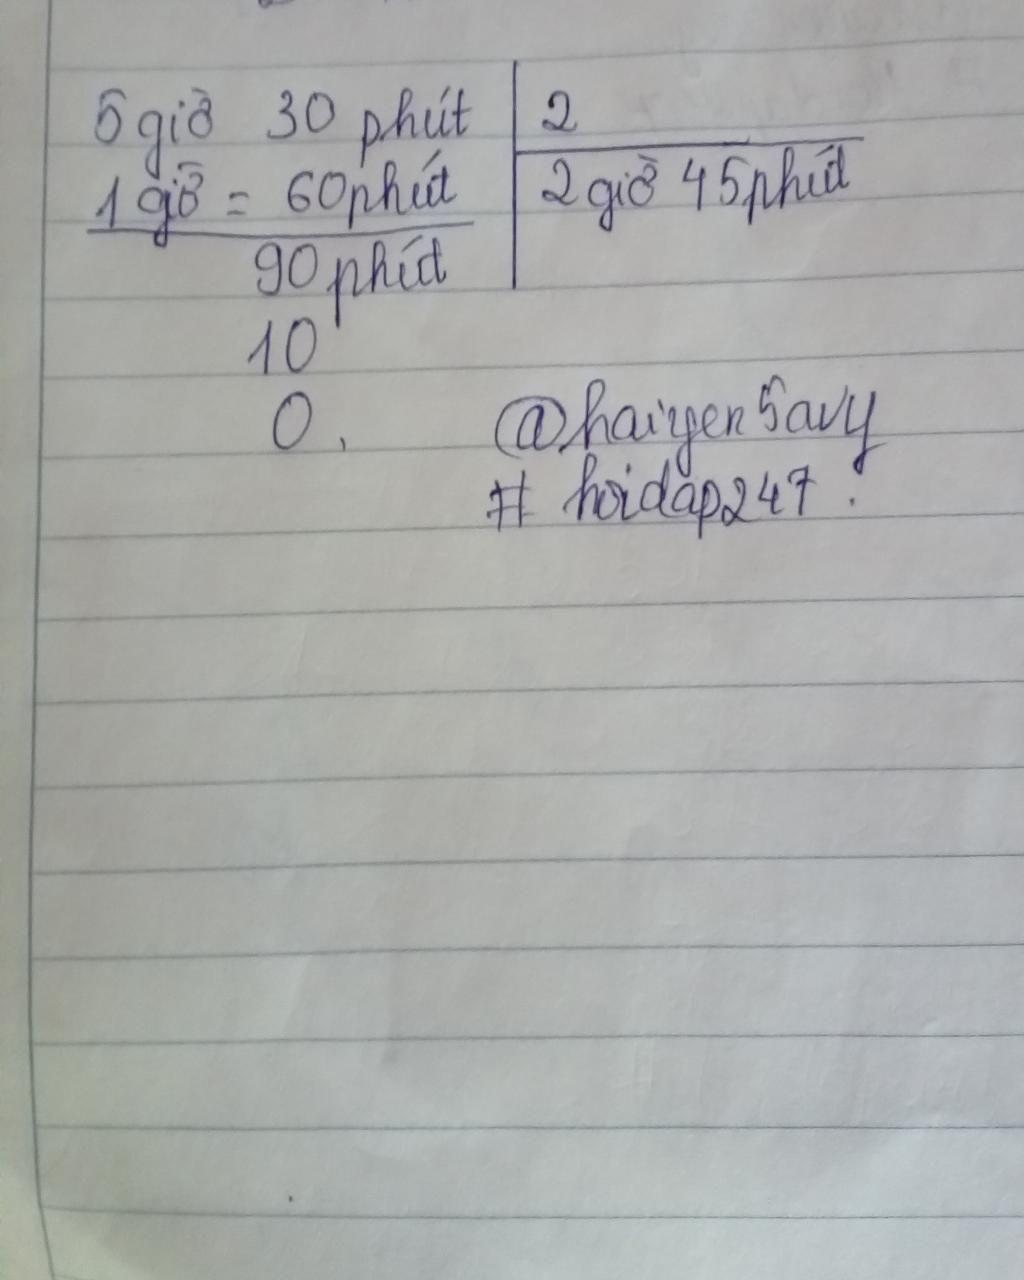 5 giờ 30 phút 2
1 giờ = 60 phút 2 giờ 45 phút
90 phút
10
0.
@haiyen5avy
# hoidap247.